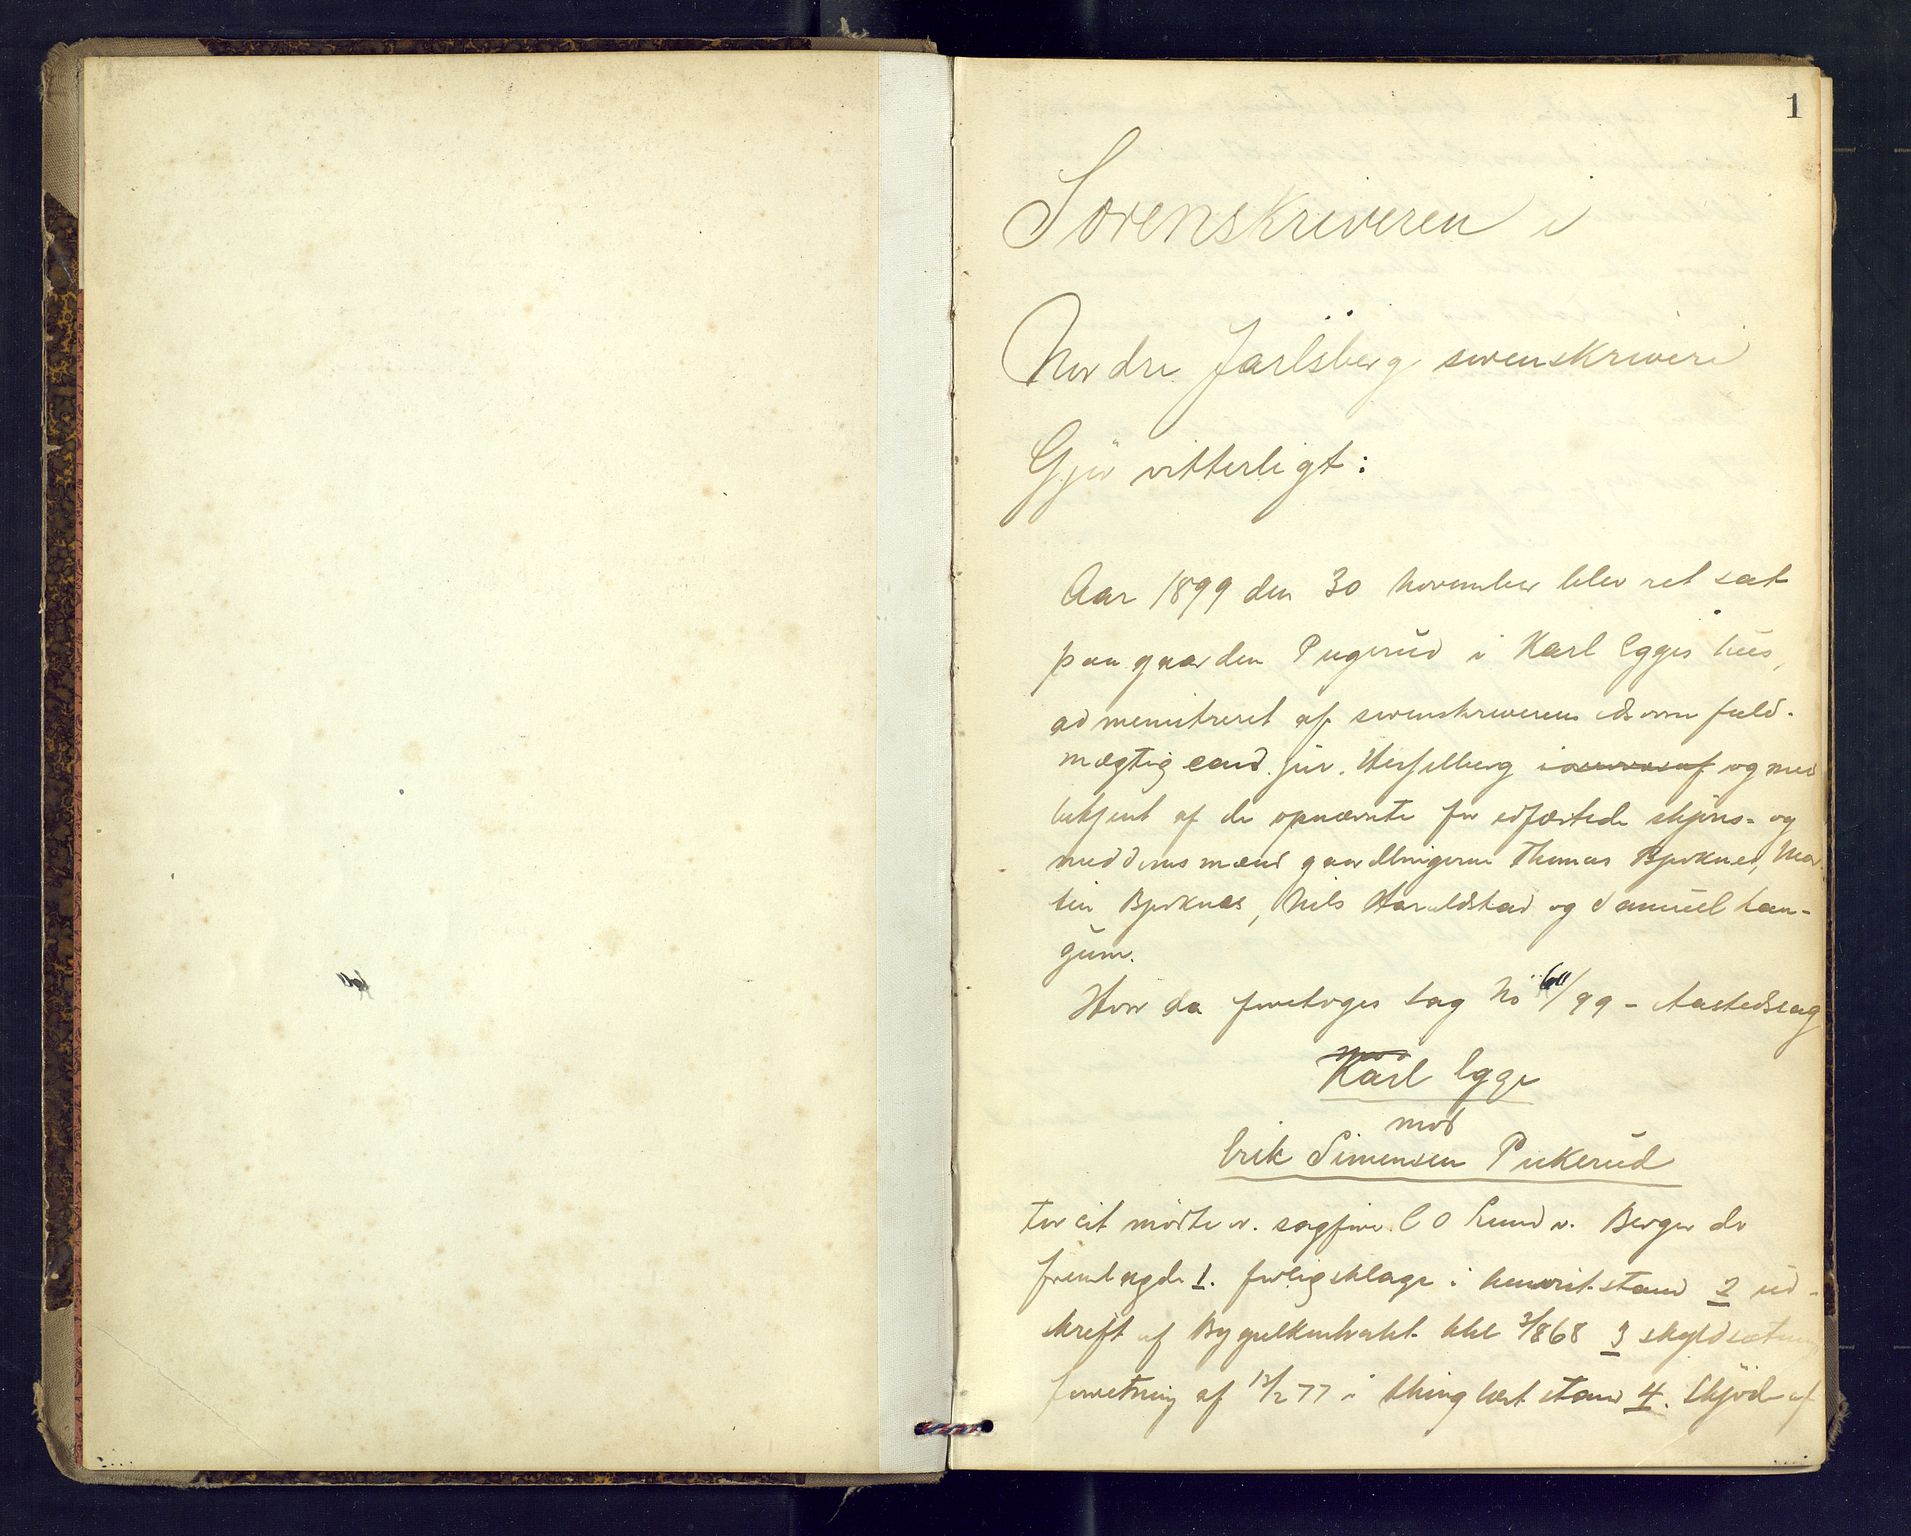 1
Sorenskriveren i
Nordre Jarlsberg sorenskriveri
Gjör vitterligt:
Aar 1899 den 30 November blev ret sat
paa gaarden Pugerud i Karl Egges hus,
administreret af sorenskriverens edsvorne fuld-
mægtig cand. jur. Hesselberg og med
betjent af de opnævnte for edfæstede skjöns- og
meddomsmænd gaardbrugerne Thomas Bjerknes, Mar
tin Bjerknes, Nils Haraldstad og Samuel Lan-
gum.
Hvor da foretoges sag No 60/99 - Aastedssag
Karl Egge
mod
Erik Simensen Pukerud
For cit mödte o. sagförer C O Lund v. Berger der
fremlagde 1. forligsklage i stand 2 ud-
skrift af thl 3/868 3 skyldsætnings
forretning af 12/2 77 i thinglæst stand 4. Skjöde af